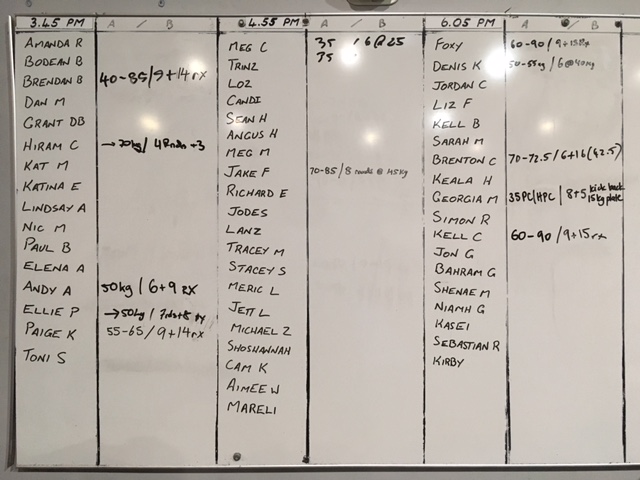 3.45 PM A / B
AMANDA R
BODEAN B
BRENDAN B 40-85/9+14rx
DAN M
GRANT DB
HIRAM C →70kg/ 4 Rnds +3
KAT M
KATINA E
LINDSAY A
NIC M
PAUL B
ELENA A
ANDY A 50kg / 6+9 RX
ELLIE P →50kg / 7rds+8 rx
PAIGE K 55-65/9+14rx
TONI S
4.55 PM A / B
MEG C 35 / 6@25
TRINZ 35
LOZ
CANDI
SEAN H
ANGUS H
MEG M
JAKE F 70-85/8 rounds @ 45kg
RICHARD E
JODES
LANZ
TRACEY M
STACEY S
MERIC L
JETT L
MICHAEL Z
SHOSHANNAH
CAM K
AIMEE W
MARELI
6.05 PM A / B
FOXY 60-90/9+15Rx
DENIS K 50-55kg /6@40kg
JORDAN C
LIZ F
KELL B
SARAH M
BRENTON C 70-72.5/6+16(42.5)
KEALA H
GEORGIA M 35PC/HPC / 8+5 kick back 15kg plate
SIMON R
KELL C 60-90 /9+15rx
JON G
BAHRAM G
SHENAE M
NIAMH G
KASEI
SEBASTIAN R
KIRBY